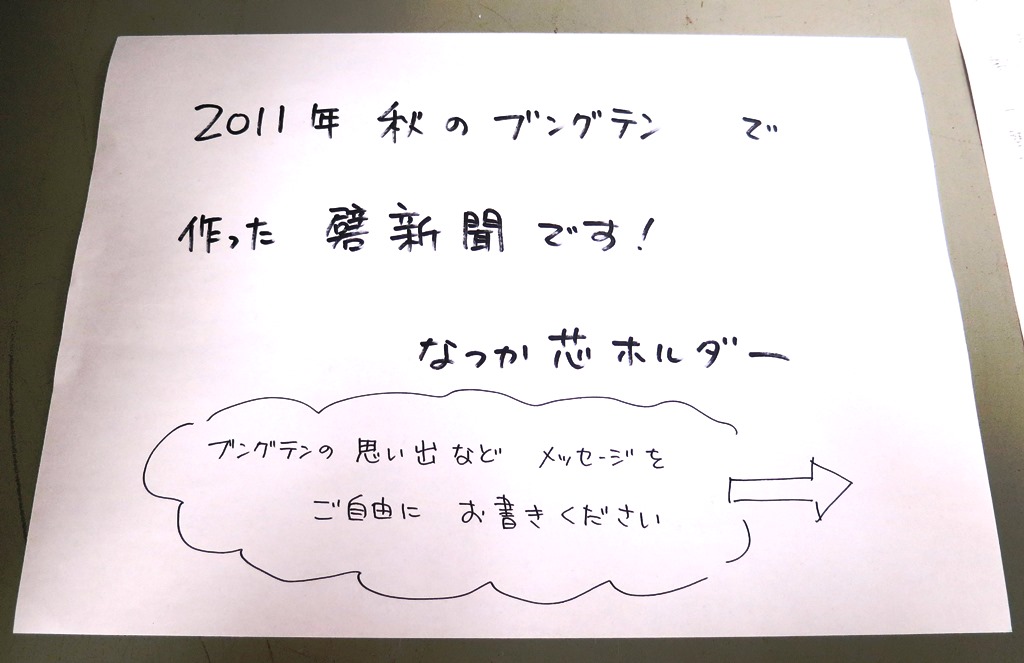 2011年 秋の ブングテン で
作った 壁新聞 です!
なつか芯ホルダー
ブングテンの 思い出など メッセージを
ご自由に お書きください